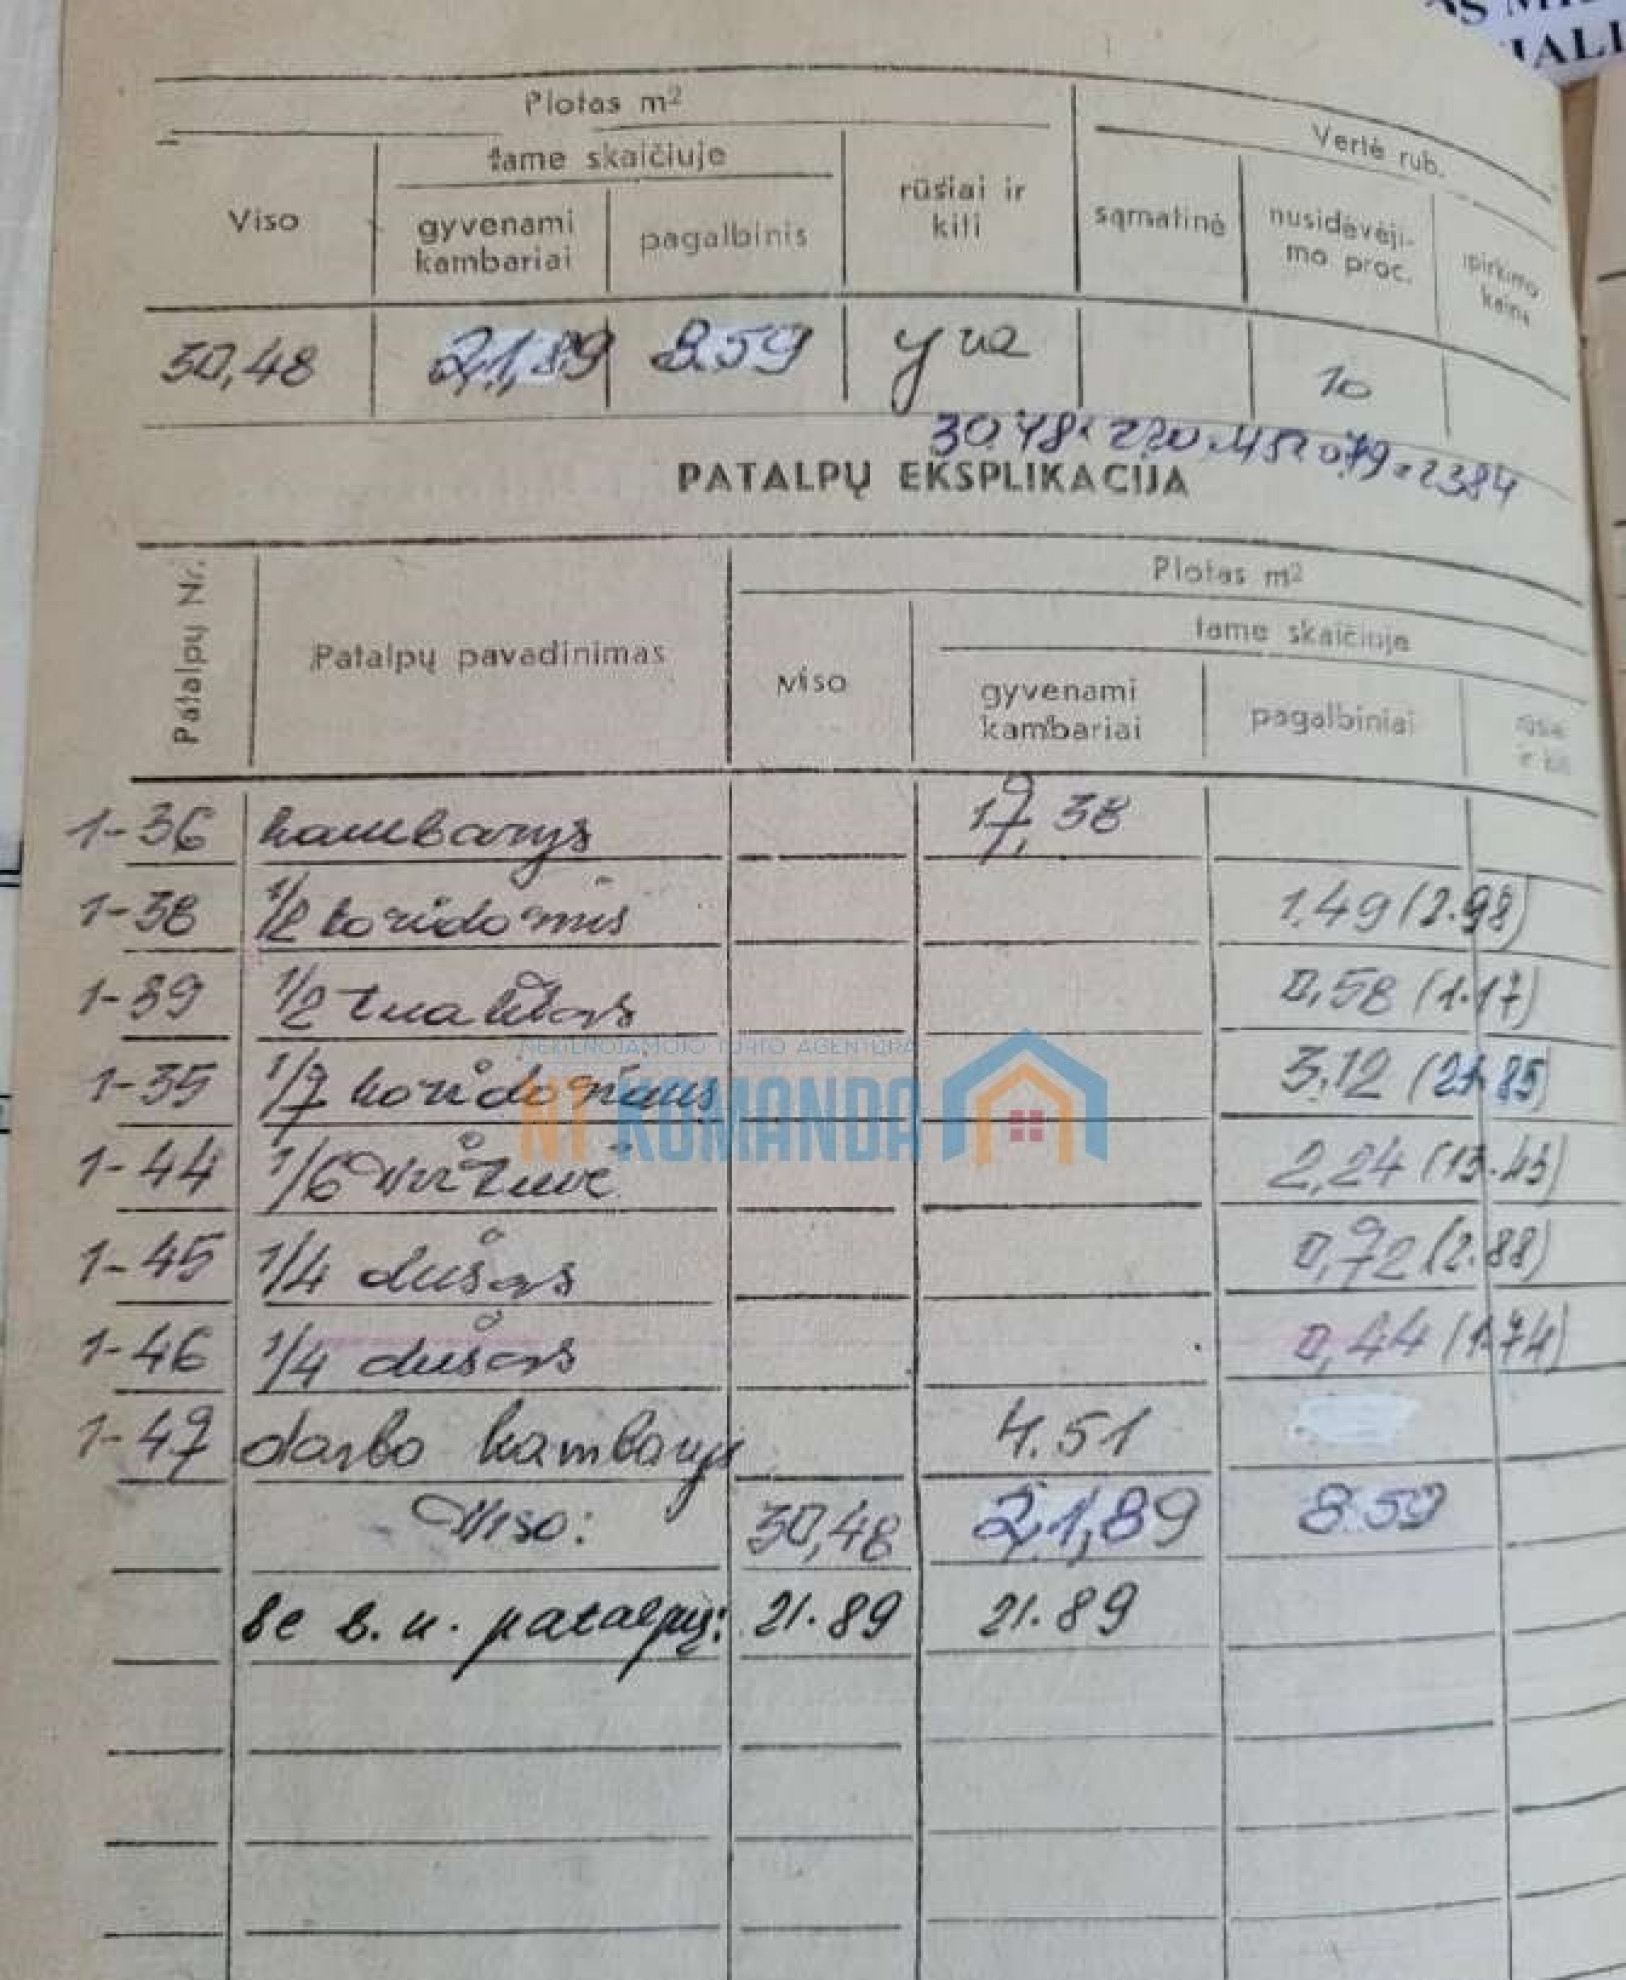 Plotas m²
Vertė rub.
tame skaičiuje
Viso
gyvenami kambariai
pagalbinis
rūsiai ir kiti
sąmatinė
nusidėvėji-mo proc.
įpirkimo kaina
30,48 21,89 8.59 yra 10
PATALPŲ EKSPLIKACIJA
Patalpų Nr.
Patalpų pavadinimas
Plotas m²
tame skaičiuje
viso
gyvenami kambariai
pagalbiniai
rūsiai ir kiti
1-36 kambarys 17,38
1-38 1/2 koridorius 1.49 (2.98)
1-39 1/2 tualetas 0,58 (1.17)
1-35 1/7 koridorius 3,12 (21.85)
1-44 1/6 virtuvė 2,24 (13.43)
1-45 1/4 dušas 0,72 (2.88)
1-46 1/4 dušas 0,44 (1.74)
1-47 darbo kambarys 4.51
Viso: 30,48 21,89 8.59
be b. n. patalpų: 21.89 21.89
NEKILNOJAMOJO TURTO AGENTŪRA
NT KOMANDA